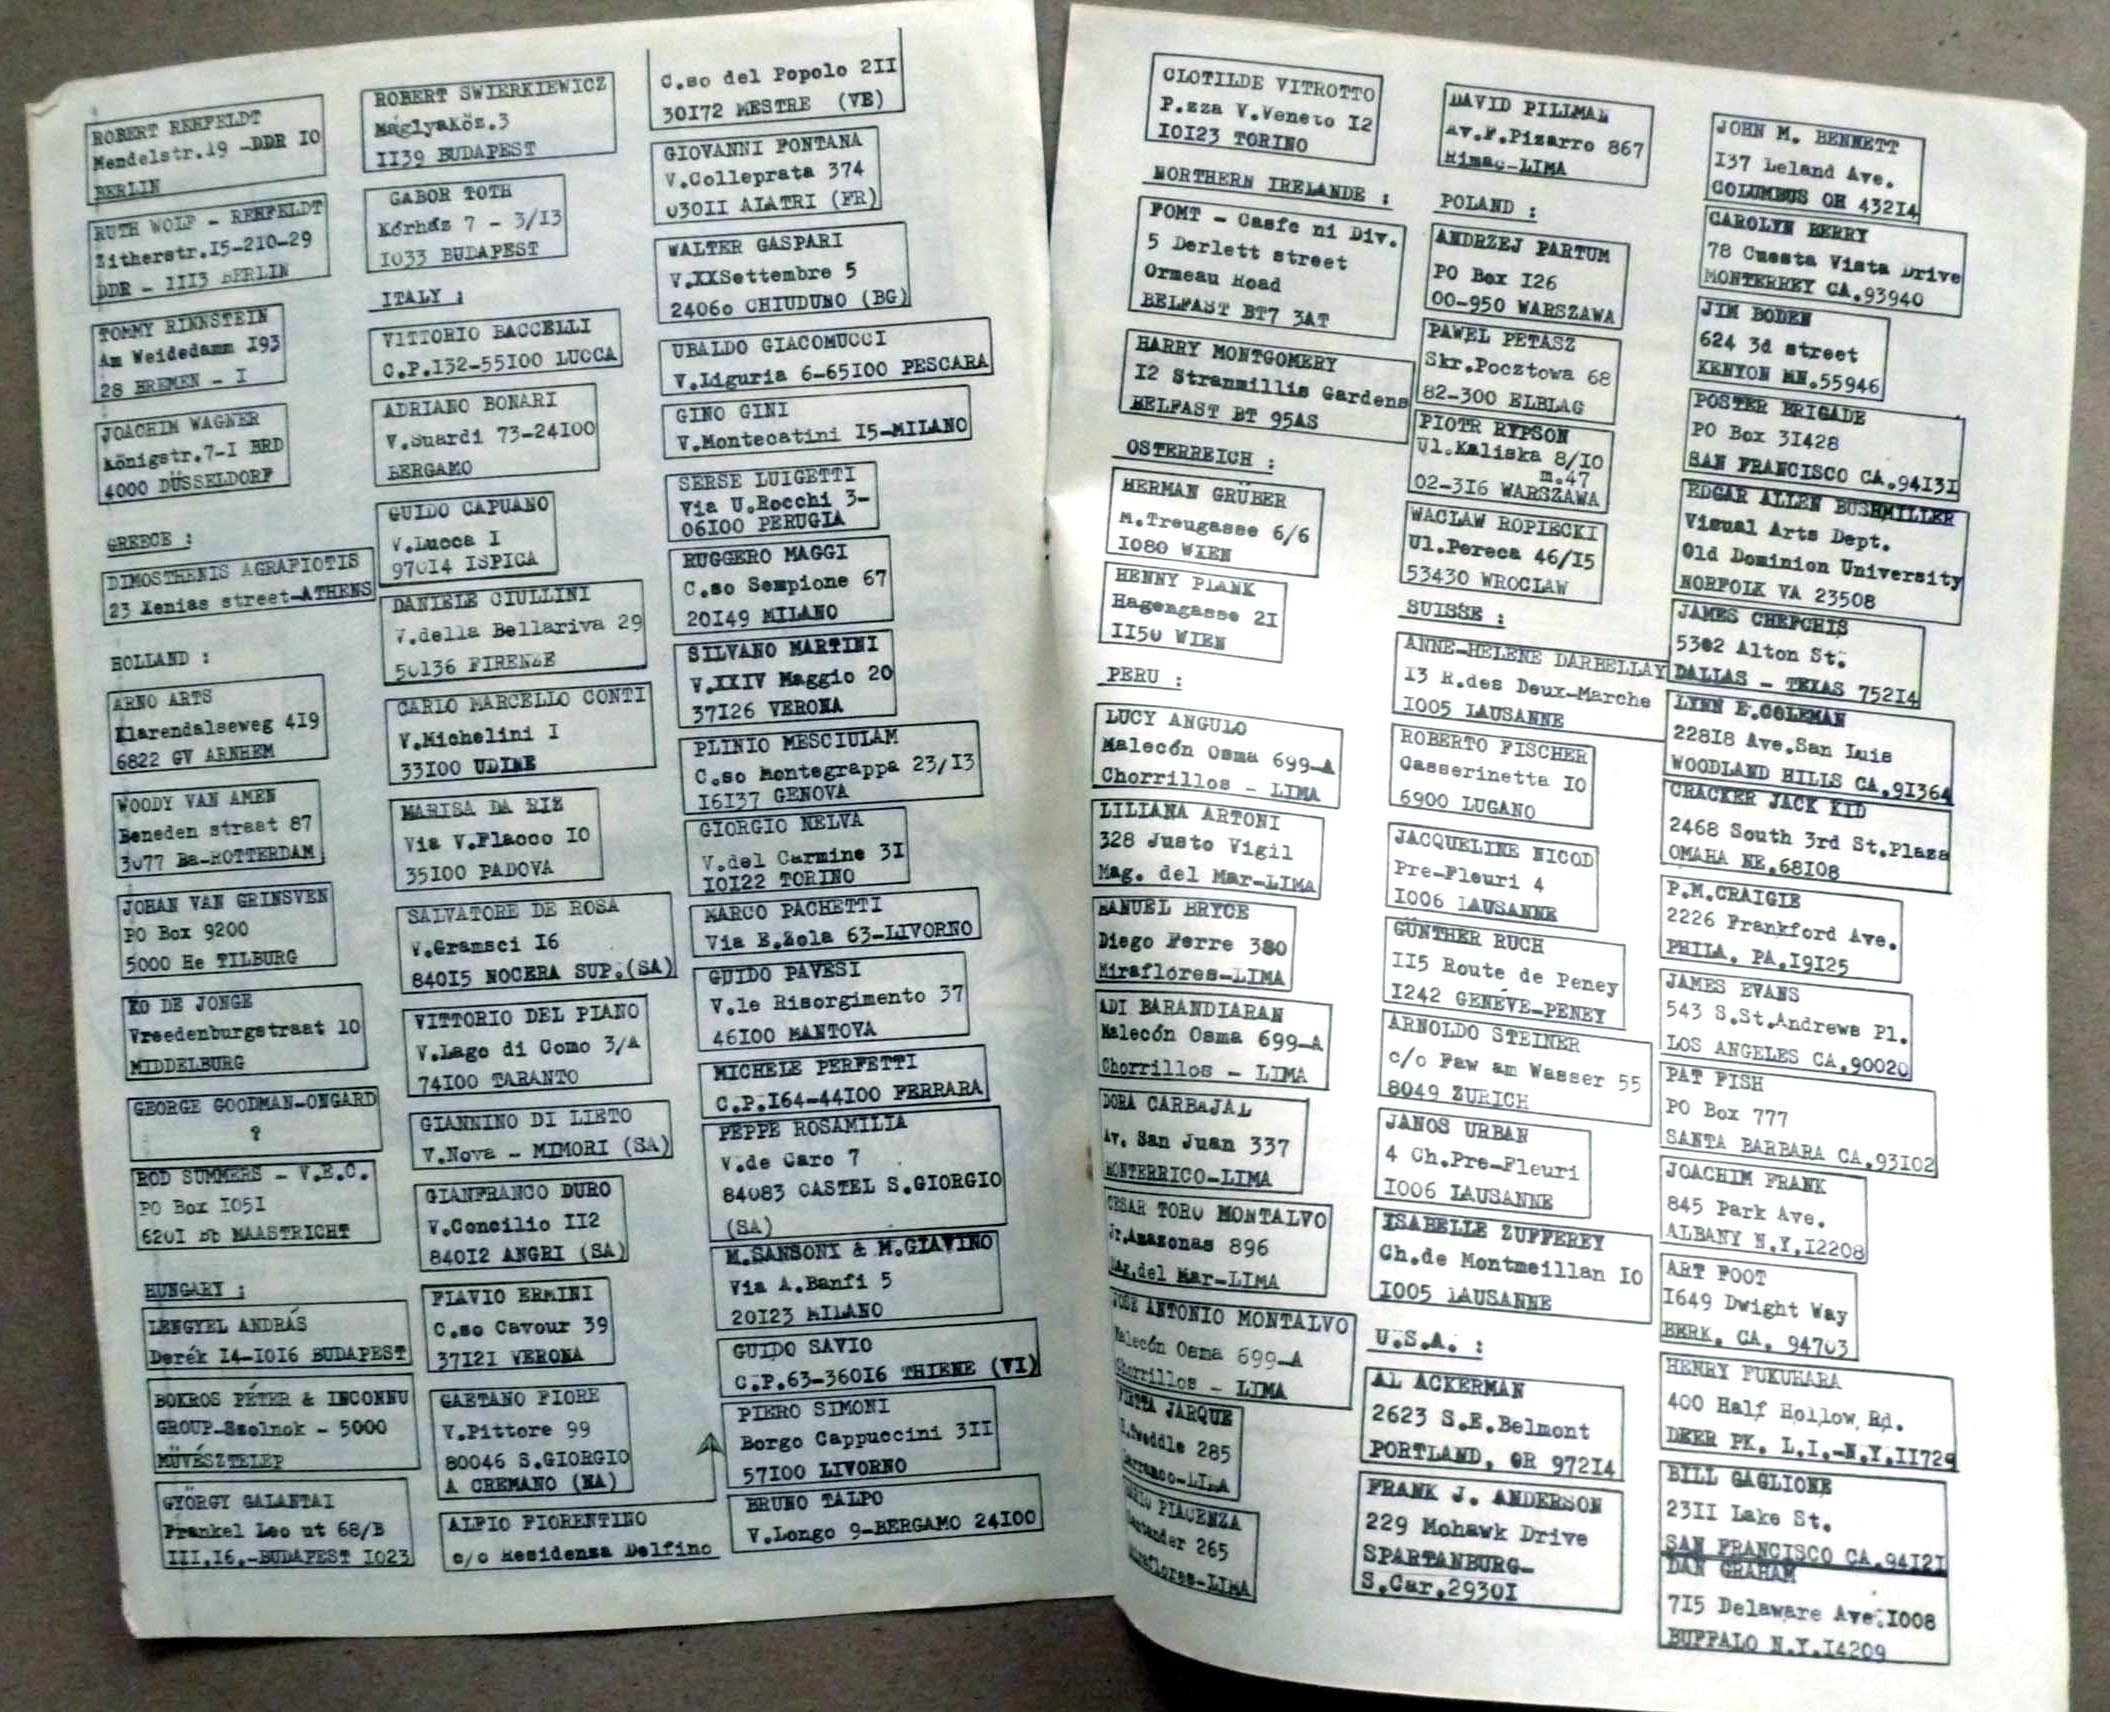 ROBERT REHFELDT
Mendelstr.19 -DDR IO
BERLIN
RUTH WOLF - REHFELDT
Zitherstr.I5-210-29
DDR - III3 BERLIN
TOMMY RINNSTEIN
Am Weidedamm I93
28 BREMEN - I
JOACHIM WAGNER
Königstr.7-I BRD
4000 DÜSSELDORF
GREECE :
DIMOSTHENIS AGRAFIOTIS
23 Xenias street-ATHENS
HOLLAND :
ARNO ARTS
Klarendalseweg 4I9
6822 GV ARNHEM
WOODY VAN AMEN
Beneden straat 87
3077 Ba-ROTTERDAM
JOHAN VAN GRINSVEN
PO Box 9200
5000 He TILBURG
KO DE JONGE
Vreedenburgstraat 10
MIDDELBURG
GEORGE GOODMAN-ONGARD
?
ROD SUMMERS - V.E.C.
PO Box I05I
620I Bb MAASTRICHT
HUNGARY :
LENGYEL ANDRÁS
Derék I4-IOI6 BUDAPEST
BOKROS PÉTER & INCONNU
GROUP-Szolnok - 5000
MÜVÉSZTELEP
GYÖRGY GALANTAI
Frankel Leo ut 68/B
III.I6.-BUDAPEST I023
ROBERT SWIERKIEWICZ
Máglyaköz.3
II39 BUDAPEST
GABOR TOTH
Kórház 7 - 3/I3
I033 BUDAPEST
ITALY :
VITTORIO BACCELLI
C.P.I32-55I00 LUCCA
ADRIANO BONARI
V.Suardi 73-24I00
BERGAMO
GUIDO CAPUANO
V.Lucca I
970I4 ISPICA
DANIELE CIULLINI
V.della Bellariva 29
50I36 FIRENZE
CARLO MARCELLO CONTI
V.Michelini I
33I00 UDINE
MARISA DA RIZ
Via V.Flacco IO
35I00 PADOVA
SALVATORE DE ROSA
V.Gramsci I6
840I5 NOCERA SUP.(SA)
VITTORIO DEL PIANO
V.Lago di Como 3/A
74I00 TARANTO
GIANNINO DI LIETO
V.Nova - MIMORI (SA)
GIANFRANCO DURO
V.Concilio II2
840I2 ANGRI (SA)
FLAVIO ERMINI
C.so Cavour 39
37I2I VERONA
GAETANO FIORE
V.Pittore 99
80046 S.GIORGIO
A CREMANO (NA)
ALFIO FIORENTINO
c/o Residenza Delfino
C.so del Popolo 2II
30I72 MESTRE (VE)
GIOVANNI FONTANA
V.Colleprata 374
030II ALATRI (FR)
WALTER GASPARI
V.XXSettembre 5
24060 CHIUDUNO (BG)
UBALDO GIACOMUCCI
V.Liguria 6-65I00 PESCARA
GINO GINI
V.Montecatini I5-MILANO
SERSE LUIGETTI
Via U.Rocchi 3-
06I00 PERUGIA
RUGGERO MAGGI
C.so Sempione 67
20I49 MILANO
SILVANO MARTINI
V.XXIV Maggio 20
37I26 VERONA
PLINIO MESCIULAM
C.so Montegrappa 23/I3
I6I37 GENOVA
GIORGIO NELVA
V.del Carmine 3I
IOI22 TORINO
MARCO PACHETTI
Via E.Zola 63-LIVORNO
GUIDO PAVESI
V.le Risorgimento 37
46I00 MANTOVA
MICHELE PERFETTI
C.P.I64-44I00 FERRARA
PEPPE ROSAMILIA
V.de Caro 7
84083 CASTEL S.GIORGIO
(SA)
M.SANSONI & M.GIAVINO
Via A.Banfi 5
20I23 MILANO
GUIDO SAVIO
C.P.63-360I6 THIENE (VI)
PIERO SIMONI
Borgo Cappuccini 3II
57I00 LIVORNO
BRUNO TALPO
V.Longo 9-BERGAMO 24I00
CLOTILDE VITROTTO
P.zza V.Veneto I2
IOI23 TORINO
NORTHERN IRELANDE :
FOMT - Casfe ni Div.
5 Derlett street
Ormeau Road
BELFAST BT7 3AT
HARRY MONTGOMERY
I2 Stranmillis Gardens
BELFAST BT 95AS
OSTERREICH :
HERMAN GRÜBER
M.Treugasse 6/6
I080 WIEN
HENNY PLANK
Hagengasse 2I
II50 WIEN
PERU :
LUCY ANGULO
Malecón Osma 699-A
Chorrillos - LIMA
LILIANA ARTONI
328 Justo Vigil
Mag. del Mar-LIMA
MANUEL BRYCE
Diego Ferre 380
Miraflores-LIMA
ADI BARANDIARAN
Malecón Osma 699-A
Chorrillos - LIMA
DORA CARBAJAL
Av. San Juan 337
MONTERRICO-LIMA
CESAR TORO MONTALVO
Jr.Amazonas 896
Mag.del Mar-LIMA
JOSE ANTONIO MONTALVO
Malecón Osma 699-A
Chorrillos - LIMA
JARQUE
285
Barranco-LIMA
PIACENZA
Santander 265
Miraflores-LIMA
DAVID PILLMAN
Av.F.Pizarro 867
Rimac-LIMA
POLAND :
ANDRZEJ PARTUM
PO Box I26
00-950 WARSZAWA
PAWEL PETASZ
Skr.Pocztowa 68
82-300 ELBLAG
PIOTR RYPSON
Ul.Kaliska 8/IO
m.47
02-3I6 WARSZAWA
WACLAW ROPIECKI
Ul.Pereca 46/I5
53430 WROCLAW
SUISSE :
ANNE-HELENE DARBELLAY
I3 R.des Deux-Marche
I005 LAUSANNE
ROBERTO FISCHER
Casserinetta IO
6900 LUGANO
JACQUELINE NICOD
Pre-Fleuri 4
I006 LAUSANNE
GÜNTHER RUCH
II5 Route de Peney
I242 GENÉVE-PENEY
ARNOLDO STEINER
c/o Faw am Wasser 55
8049 ZURICH
JANOS URBAN
4 Ch.Pre-Fleuri
I006 LAUSANNE
ISABELLE ZUFFEREY
Ch.de Montmeillan IO
I005 LAUSANNE
U.S.A. :
AL ACKERMAN
2623 S.E.Belmont
PORTLAND, OR 972I4
FRANK J. ANDERSON
229 Mohawk Drive
SPARTANBURG-
S.Car.2930I
JOHN M. BENNETT
I37 Leland Ave.
COLUMBUS OH 432I4
CAROLYN BERRY
78 Cuesta Vista Drive
MONTERREY CA.93940
JIM BODEN
624 3d street
KENYON MN.55946
POSTER BRIGADE
PO Box 3I428
SAN FRANCISCO CA.94I3I
EDGAR ALLEN BUSHMILLER
Visual Arts Dept.
Old Dominion University
NORFOLK VA 23508
JAMES CHEFCHIS
5302 Alton St.
DALLAS - TEXAS 752I4
LYNN E.COLEMAN
228I8 Ave.San Luis
WOODLAND HILLS CA.9I364
CRACKER JACK KID
2468 South 3rd St.Plaza
OMAHA NE.68I08
P.M.CRAIGIE
2226 Frankford Ave.
PHILA. PA.I9I25
JAMES EVANS
543 S.St.Andrews Pl.
LOS ANGELES CA.90020
PAT FISH
PO Box 777
SANTA BARBARA CA.93I02
JOACHIM FRANK
845 Park Ave.
ALBANY N.Y.I2208
ART FOOT
I649 Dwight Way
BERK. CA. 94703
HENRY FUKUHARA
400 Half Hollow Rd.
DEER PK. L.I.-N.Y.II729
BILL GAGLIONE
23II Lake St.
SAN FRANCISCO CA.94I2I
DAN GRAHAM
7I5 Delaware Ave.I008
BUFFALO N.Y.I4209